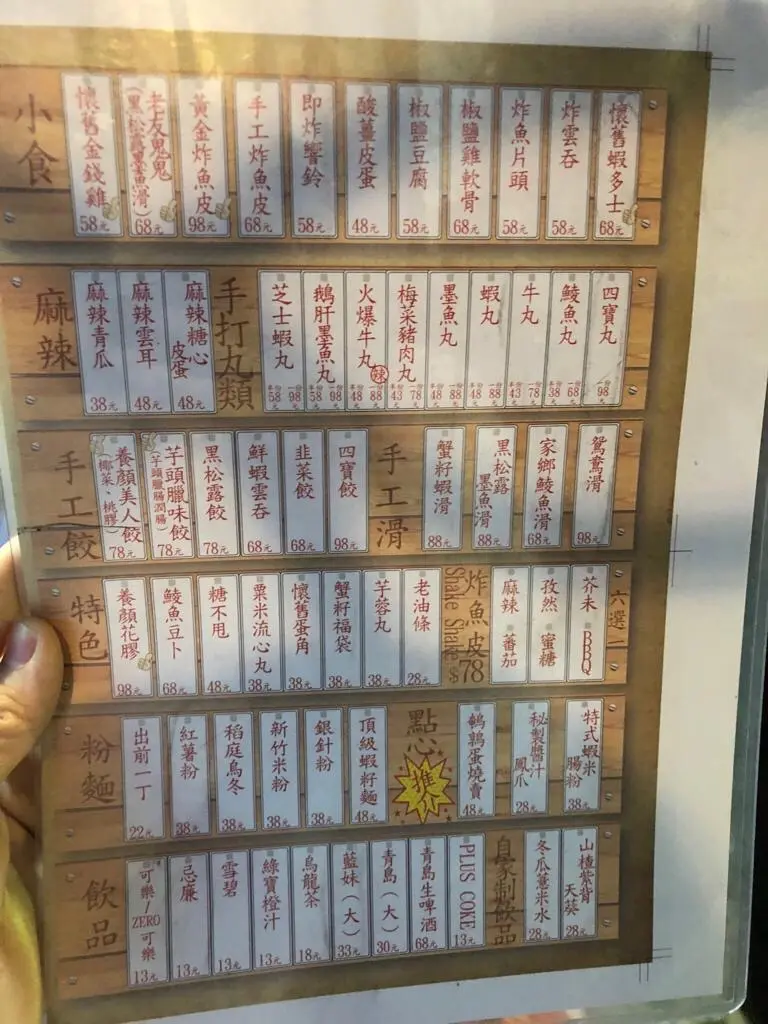 小食
懷舊金錢雞
58元
老友鬼鬼
(黑松露墨魚滑)
68元
黃金炸魚皮
98元
手工炸魚皮
68元
即炸響鈴
58元
酸薑皮蛋
48元
椒鹽豆腐
58元
椒鹽雞軟骨
68元
炸魚片頭
58元
炸雲吞
58元
懷舊蝦多士
68元
麻辣
麻辣青瓜
38元
麻辣雲耳
48元
麻辣糖心
皮蛋
48元
手打丸類
芝士蝦丸
半份 58 一份 98
鵝肝墨魚丸
半份 58 一份 98
火爆牛丸
辣
半份 48 一份 88
梅菜豬肉丸
半份 43 一份 78
墨魚丸
半份 48 一份 88
蝦丸
半份 48 一份 88
牛丸
半份 43 一份 78
鯪魚丸
半份 38 一份 68
四寶丸
一份 98
手工餃
養顏美人餃
(椰菜、桃膠)
78元
芋頭臘味餃
(芋頭臘腸潤腸)
78元
黑松露餃
78元
鮮蝦雲吞
68元
韭菜餃
68元
四寶餃
98元
手工滑
蟹籽蝦滑
88元
黑松露
墨魚滑
88元
家鄉鯪魚滑
68元
鴛鴦滑
98元
特色
養顏花膠
98元
鯪魚豆卜
68元
糖不甩
48元
粟米流心丸
38元
懷舊蛋角
38元
蟹籽福袋
38元
芋蓉丸
38元
老油條
28元
炸魚皮
Shake Shake
$78
麻辣 蕃茄
孜然 蜜糖
芥末 BBQ
六選一
粉麵
出前一丁
22元
紅薯粉
38元
稻庭烏冬
38元
新竹米粉
38元
銀針粉
38元
頂級蝦籽麵
48元
點心
推介
鵪鶉蛋燒賣
48元
秘製醬汁
鳳爪
28元
特式蝦米
腸粉
38元
飲品
可樂/ZERO可樂
13元
忌廉
13元
雪碧
13元
綠寶橙汁
13元
烏龍茶
18元
藍妹(大)
33元
青島(大)
30元
青島生啤酒
68元
PLUS COKE
13元
自家制飲品
冬瓜薏米水
28元
山楂紫背
天葵
28元